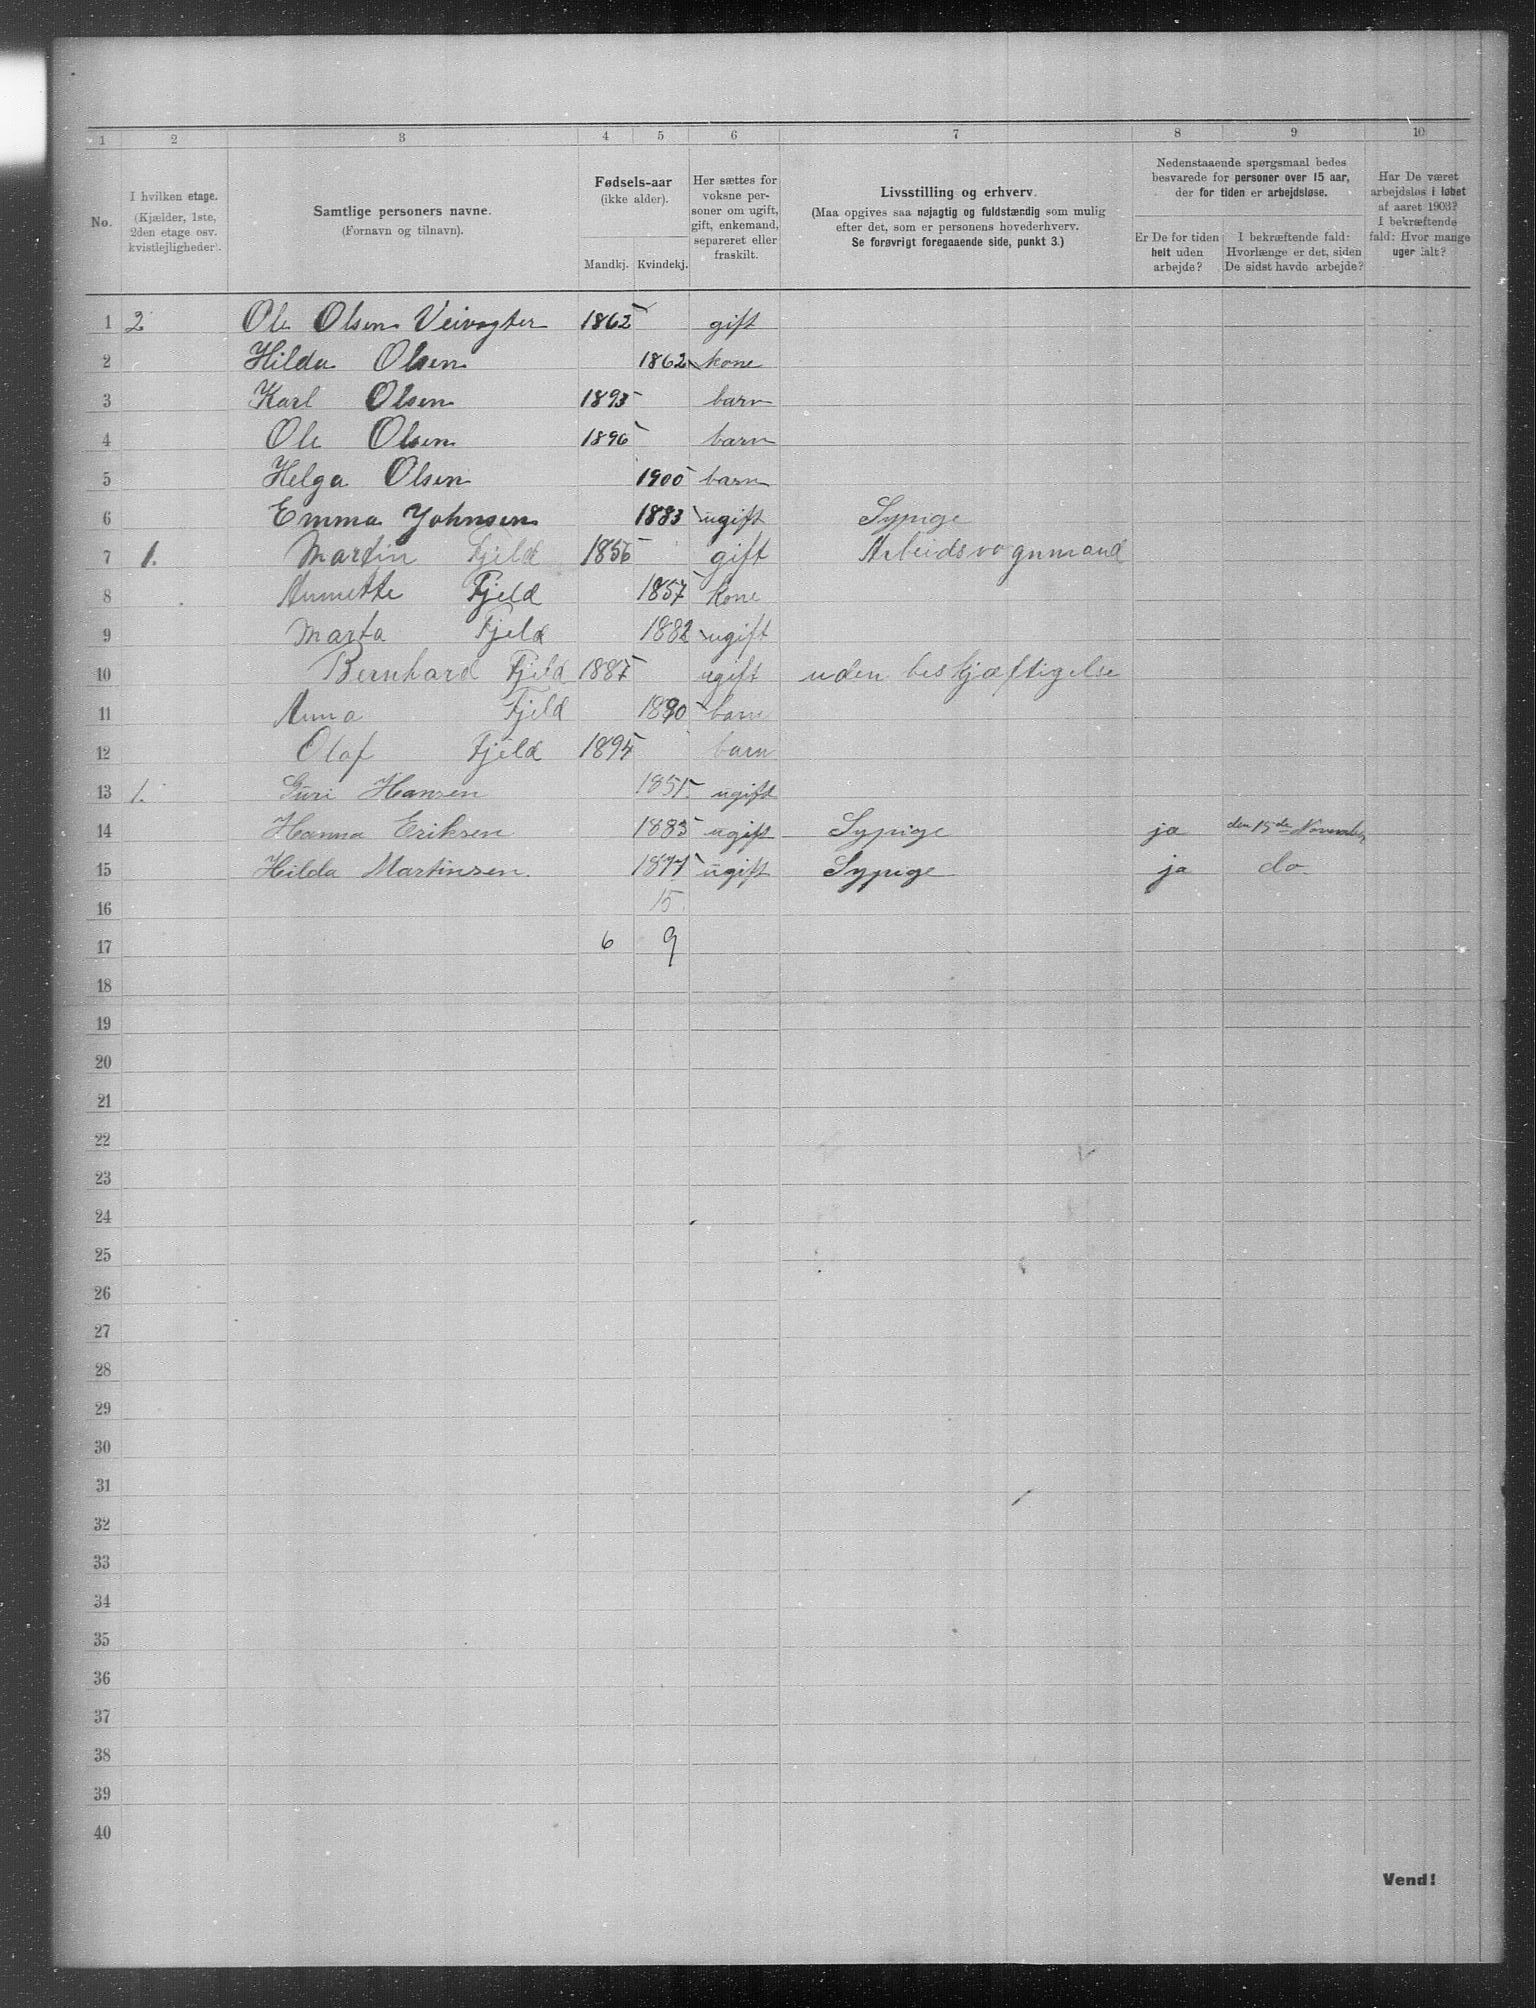 1 2 3 4 5 6 7 8 9 10
No.
I hvilken etage.
(Kjælder, 1ste,
2den etage osv.
kvistlejligheder).
Samtlige personers navne.
(Fornavn og tilnavn).
Fødsels-aar
(ikke alder).
Mandkj. Kvindekj.
Her sættes for
voksne per-
soner om ugift,
gift, enkemand,
separeret eller
fraskilt.
Livsstilling og erhverv.
(Maa opgives saa nøjagtig og fuldstændig som mulig
efter det, som er personens hovederhverv.
Se forøvrigt foregaaende side, punkt 3.)
Nedenstaaende spørgsmaal bedes
besvarede for personer over 15 aar,
der for tiden er arbejdsløse.
Er De for tiden
helt uden
arbejde?
I bekræftende fald:
Hvorlænge er det, siden
De sidst havde arbejde?
Har De været
arbejdsløs i løbet
af aaret 1903?
I bekræftende
fald: Hvor mange
uger ialt?
1 2 Ole Olsen Veivogter 1862 gift
2 Hilda Olsen 1862 kone
3 Karl Olsen 1893 barn
4 Ole Olsen 1896 barn
5 Helga Olsen 1900 barn
6 Emma Johnsen 1883 ugift Sypige
7 1. Martin Fjeld 1856 gift Arbeidsvognmand
8 Annette Fjeld 1857 kone
9 Marta Fjeld 1882 ugift
10 Bernhard Fjeld 1887 ugift uden beskjæftigelse
11 Anna Fjeld 1890 barn
12 Olaf Fjeld 1895 barn
13 1. Guri Hansen 1851 ugift
14 Hanna Eriksen 1885 ugift Sypige ja den 15de November
15 Hilda Martinsen. 1877 ugift Sypige ja do.
16 15.
17 6 9
18
19
20
21
22
23
24
25
26
27
28
29
30
31
32
33
34
35
36
37
38
39
40
Vend!